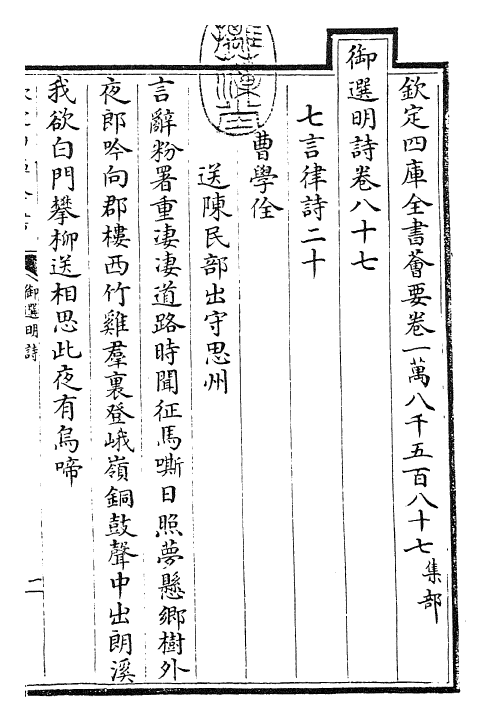 欽定四庫全書薈要卷一萬八千五百八十七集部
御選明詩卷八十七
七言律詩二十
曹學佺
送陳民部出守思州
言辭粉署重淒淒道路時聞征馬嘶日照夢懸鄉樹外
夜郎吟向郡樓西竹雞羣裏登峨嶺銅鼓聲中出朗溪
我欲白門攀柳送相思此夜有烏啼
御選明詩